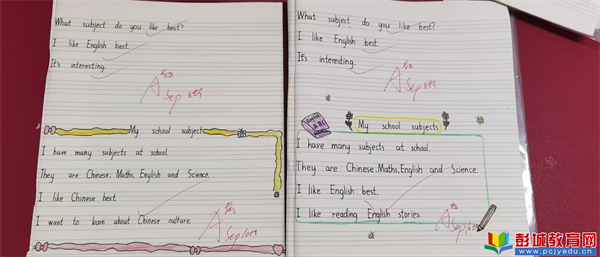 What subject do you like best?
I like English best.
It's interesting.
A
Sep 8th
My school subjects
I have many subjects at school.
They are Chinese. Maths, English and Science.
I like Chinese best.
I want to learn about Chinese culture.
A
Sep 10th
What subject do you like best?
I like English best.
It's interesting.
A
Sep 8th
My school subjects
I have many subjects at school.
They are Chinese. Maths, English and Science.
I like English best.
I like reading English stories.
A
Sep 10th
彭城教育网
www.pcjyedu.cn